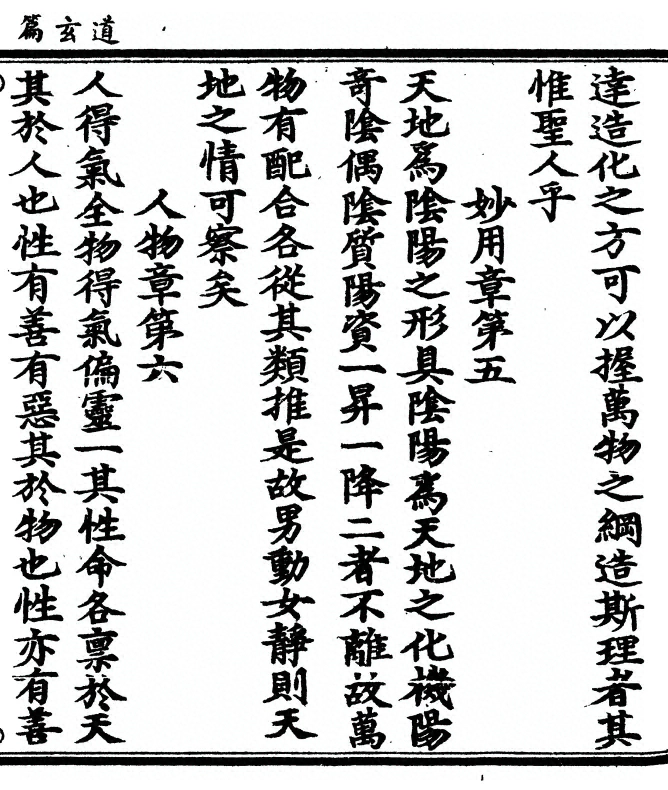 道玄篇
達造化之方可以握萬物之綱造斯理者其
惟聖人乎
妙用章第五
天地爲陰陽之形具陰陽爲天地之化機陽
奇陰偶陰質陽資一昇一降二者不離故萬
物有配合各從其類推是故男動女靜則天
地之情可察矣
人物章第六
人得氣全物得氣偏靈一其性命各稟於天
其於人也性有善有惡其於物也性亦有善